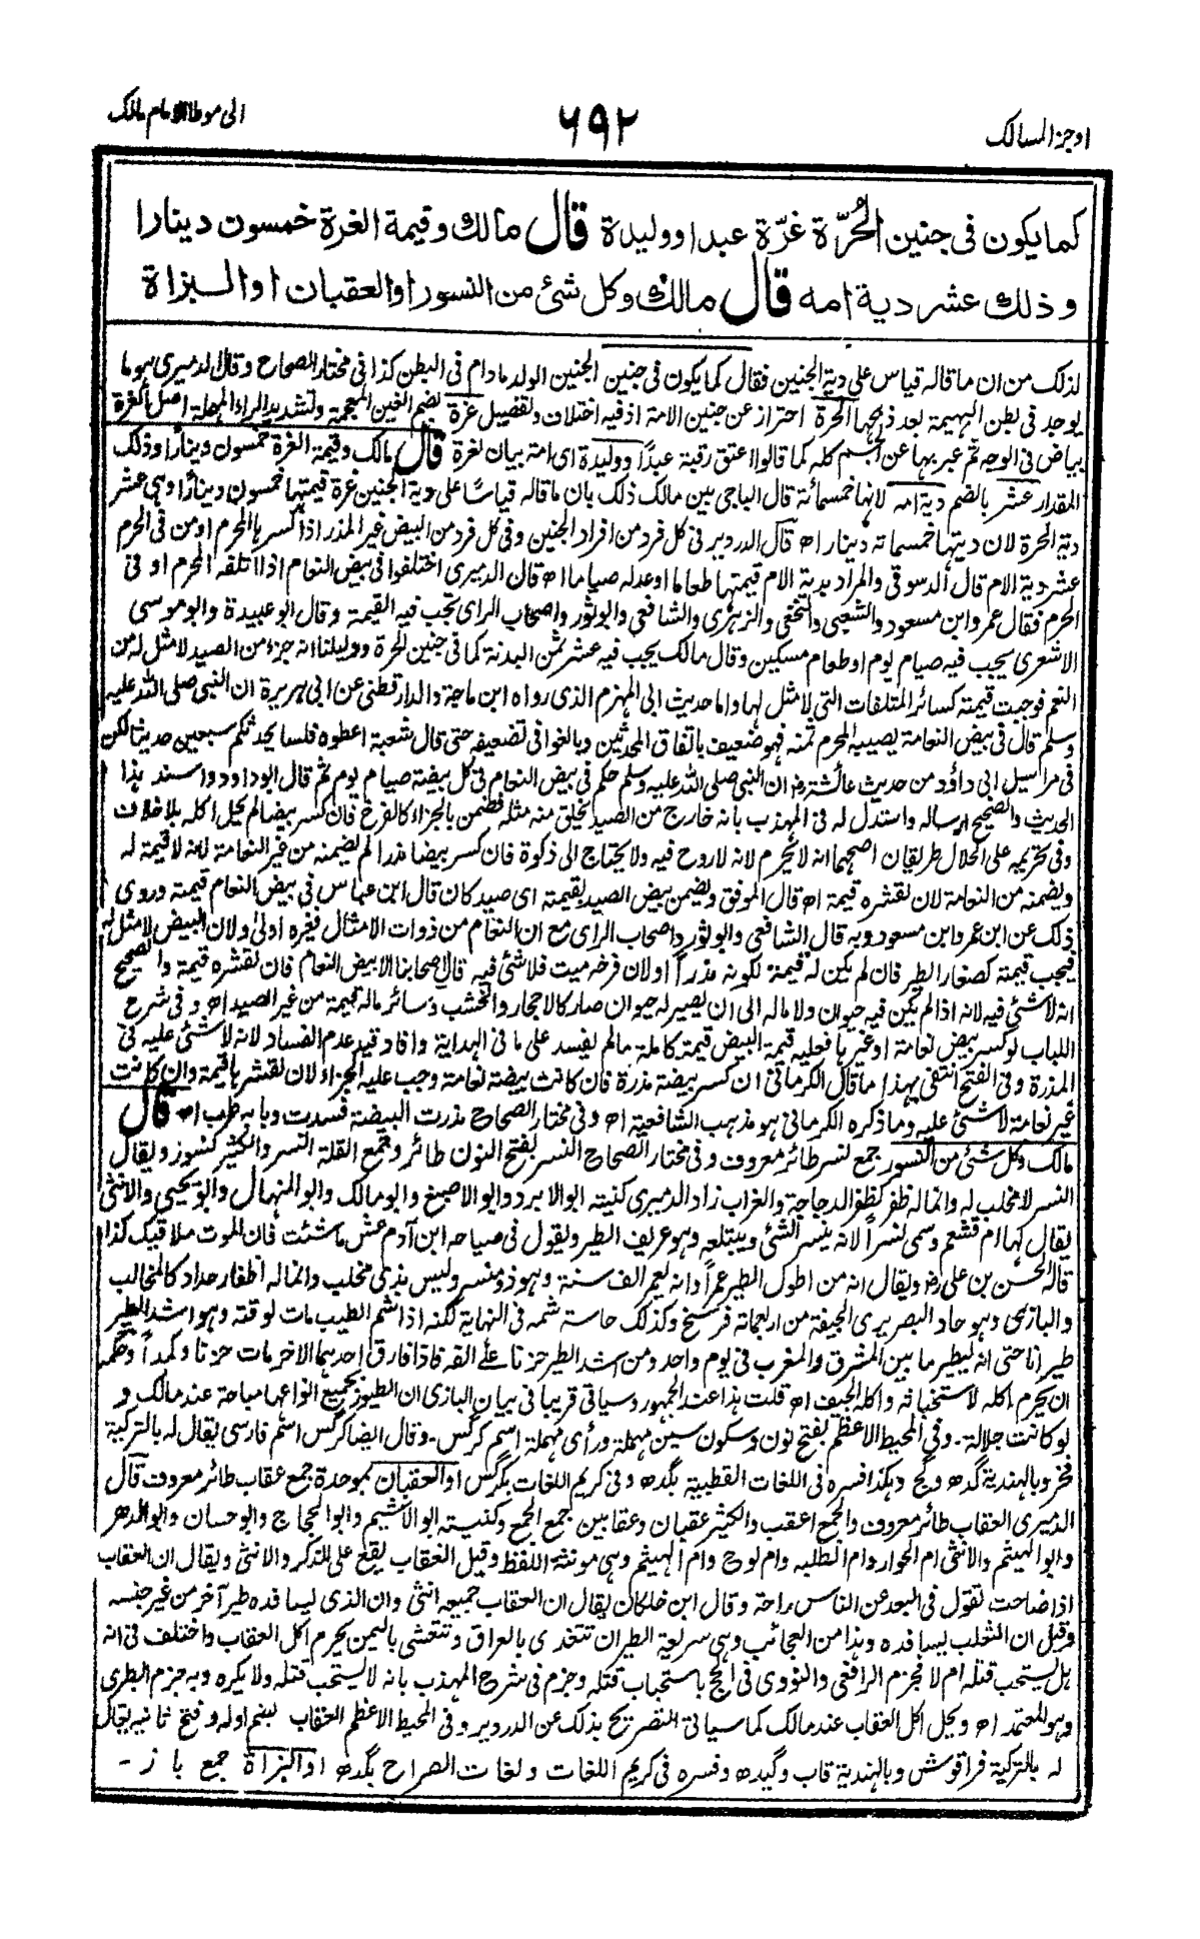 اوجز المسالک
۶۹۲
الی موطا الامام مالک
کما یکون فی جنین الحُرّة غرّة عبد او ولیدة قال مالك وقیمة الغرة خمسون دینارا
وذلك عشر دیة امه قال مالك وکل شئ من النسور او العقبان او البزاة
لذلک من ان ما قاله قیاس علی دیة الجنین فقال کما یکون فی جنین الجنین الولد ما دام فی البطن کذا فی مختار الصحاح وقال الدمیری هو ما
یوجد فی بطن البهیمة بعد ذبحها الحرة احتراز عن جنین الامة اذ فیه اختلاف وتفصیل غرة بضم الغین المعجمة وتشدید الراء المهملة اصل الغرة
بیاض فی الوجه ثم عبر بها عن الجسم کله کما قالوا اعتق رقبة عبداً وولیدة ای امة بیان لغرة قال مالک وقیمة الغرة خمسون دیناراً وذلک
المقدار عشر بالضم دیة امه لانها خمسمائة قال الباجی بین مالک ذلک بان ما قاله قیاسًا علی دیة الجنین غرة قیمتها خمسون دیناراً وهی عشر
دیة الحرة لان دیتها خمسمائة دینار اه قال الدردیر فی کل فرد من افراد الجنین وفی کل فرد من البیض غیر المذر اذا کسرها المحرم او من فی الحرم
عشر دیة الام قال الدسوقی والمراد بدیة الام قیمتها طعاما او عدله صیاما اه قال الدمیری اختلفوا فی بیض النعام اذا اتلفه المحرم او فی
الحرم فقال عمر وابن مسعود والشعبی والنخعی والزهری والشافعی وابو ثور واصحاب الرای تجب فیه القیمة وقال ابو عبیدة وابو موسی
الاشعری یجب فیه صیام یوم او طعام مسکین وقال مالک یجب فیه عشر ثمن البدنة کما فی جنین الحرة ودلیلنا انه جزء من الصید لا مثل له من
النعم فوجبت قیمته کسائر المتلفات التی لا مثل لها واما حدیث ابی المهزم الذی رواه ابن ماجة والدارقطنی عن ابی هریرة ان النبی صلی الله علیه
وسلم قال فی بیض النعامة یصیبه المحرم ثمنه فهو ضعیف باتفاق المحدثین وبالغوا فی تضعیفه حتی قال شعبة اعطوه فلسا یحدثکم سبعین حدیثا لکن
فی مراسیل ابی داؤد من حدیث عائشة رض ان النبی صلی الله علیه وسلم حکم فی بیض النعام فی کل بیضة صیام یوم ثم قال ابو داود واسند هذا
الحدیث والصحیح ارساله واستدل له فی المهذب بانه خارج من الصید یخلق منه مثله فضمن بالجزاء کالفرخ فان کسر بیضا لم یحل اکله بلا خلاف
وفی تحریمه علی الحلال طریقان اصحهما انه لا یحرم لانه لا روح فیه ولا یحتاج الی ذکوة فان کسر بیضا مذرا لم یضمنه من غیر النعامة لانه لا قیمة له
ویضمنه من النعامة لان لقشره قیمة اه قال الموفق ویضمن بیض الصید بقیمته ای صید کان قال ابن عباس فی بیض النعام قیمته وروی
ذلک عن ابن عمر وابن مسعود وبه قال الشافعی وابو ثور واصحاب الرای مع ان النعام من ذوات الامثال فغیره اولی ولان البیض لا مثل له
فیجب قیمته کصغار الطیر فان لم یکن له قیمة لکونه مذراً او لان فرخه میت فلا شئ فیه قال اصحابنا الا بیض النعام فان لقشره قیمة والصحیح
انه لا شئ فیه لانه اذا لم یکن فیه حیوان ولا ماله الی ان یصیر له حیوان صار کالاحجار والخشب وسائر ماله قیمة من غیر الصید اه وفی شرح
اللباب لو کسر بیض نعامة او غیرها فعلیه قیمة البیض قیمة کاملة مالم یفسد علی ما فی الهدایة وافاد قید عدم الفساد لانه لا شئ علیه فی
المذرة وفی الفتح انتفی بهذا ما قال الکرمانی ان کسر بیضة مذرة فان کانت بیضة نعامة وجب علیه الجزاء لان لقشرها قیمة وان کانت
غیر نعامة لا شئ علیه وما ذکره الکرمانی هو مذهب الشافعیة اه وفی مختار الصحاح مذرت البیضة فسدت وبابه طرب اه قال
مالک وکل شئ من النسور جمع نسر طائر معروف وفی مختار الصحاح النسر بفتح النون طائر وجمع القلة انسر والکثیر نسور ویقال
النسر لا مخلب له وانما له ظفر کظفر الدجاجة والغراب زاد الدمیری کنیته ابو الابرد وابو الاصبغ وابو مالک وابو المنهال وابو یحیی والانثی
یقال لها ام قشعم وسمی نسراً لانه ینسر الشئ ویبتلعه وهو عریف الطیر ویقول فی صیاحه ابن آدم عش ما شئت فان الموت ملاقیک کذا
قاله الحسن بن علی رض ویقال انه من اطول الطیر عمراً وانه یعمر الف سنة وهو ذو منسر ولیس بذی مخلب وانما له اظفار حداد کالمخالب
والبازی وهو حاد البصر یری الجیفة من اربعمائة فرسخ وکذلک حاسة شمه فی النهایة لکنه اذا شم الطیب مات لوقته وهو اشد الطیر
طیرانا حتی انه لیطیر ما بین المشرق والمغرب فی یوم واحد ومن اشد الطیر حزنا علی الفه فاذا فارق احدهما الاخر مات حزنا وکمداً وحکمه
ان یحرم اکله لاستخباثه واکله الجیف اه قلت هذا عند الجمهور وسیاتی قریبا فی بیان البازی ان الطیور بجمیع انواعها مباحة عند مالک و
لو کانت جلالة - وفی المحیط الاعظم بفتح نون وسکون سین مهملة وراء مهملة اسم کرگس - وقال ایضا کرگس اسم فارسی یقال له بالترکیة
وبالهندیة گده وهکذا فسره فی اللغات القطبیة بگده وفی کریم اللغات بکرگس او العقبان بموحدة جمع عقاب طائر معروف قال
الدمیری العقاب طائر معروف والجمع اعقب والکثیر عقبان وعقابین جمع الجمع وکنیته ابو الاشیم وابو الحجاج وابو حسان وابو الدهر
وابو الهیثم والانثی ام الحوار وام الطلبه وام لوح وام الهیثم وهی مونثة اللفظ وقیل العقاب یقع علی الذکر والانثی ویقال ان العقاب
اذا صاحت تقول فی البعد عن الناس راحة وقال ابن خلکان یقال ان العقاب جمیعه انثی وان الذی یسافده طیر آخر من غیر جنسه
وقیل ان الثعلب یسافده وهذا من العجائب وهی سریعة الطیران تتغدی بالعراق وتتعشی بالیمن یحرم اکل العقاب واختلف فی انه
هل یستحب قتله ام لا فجزم الرافعی والنووی فی الحج باستحباب قتله وجزم فی شرح المهذب بانه لا یستحب قتله ولا یکره وبه جزم الطبری
وهو المعتمد اه ویحل اکل العقاب عند مالک کما سیاتی التصریح بذلک عن الدردیر وفی المحیط الاعظم العقاب بضم اوله وفتح ثانیه یقال
له بالترکیة قراقوش وبالهندیة قاب وگیده وفسره فی کریم اللغات ولغات الصراح بگده او البزاة جمع باز -